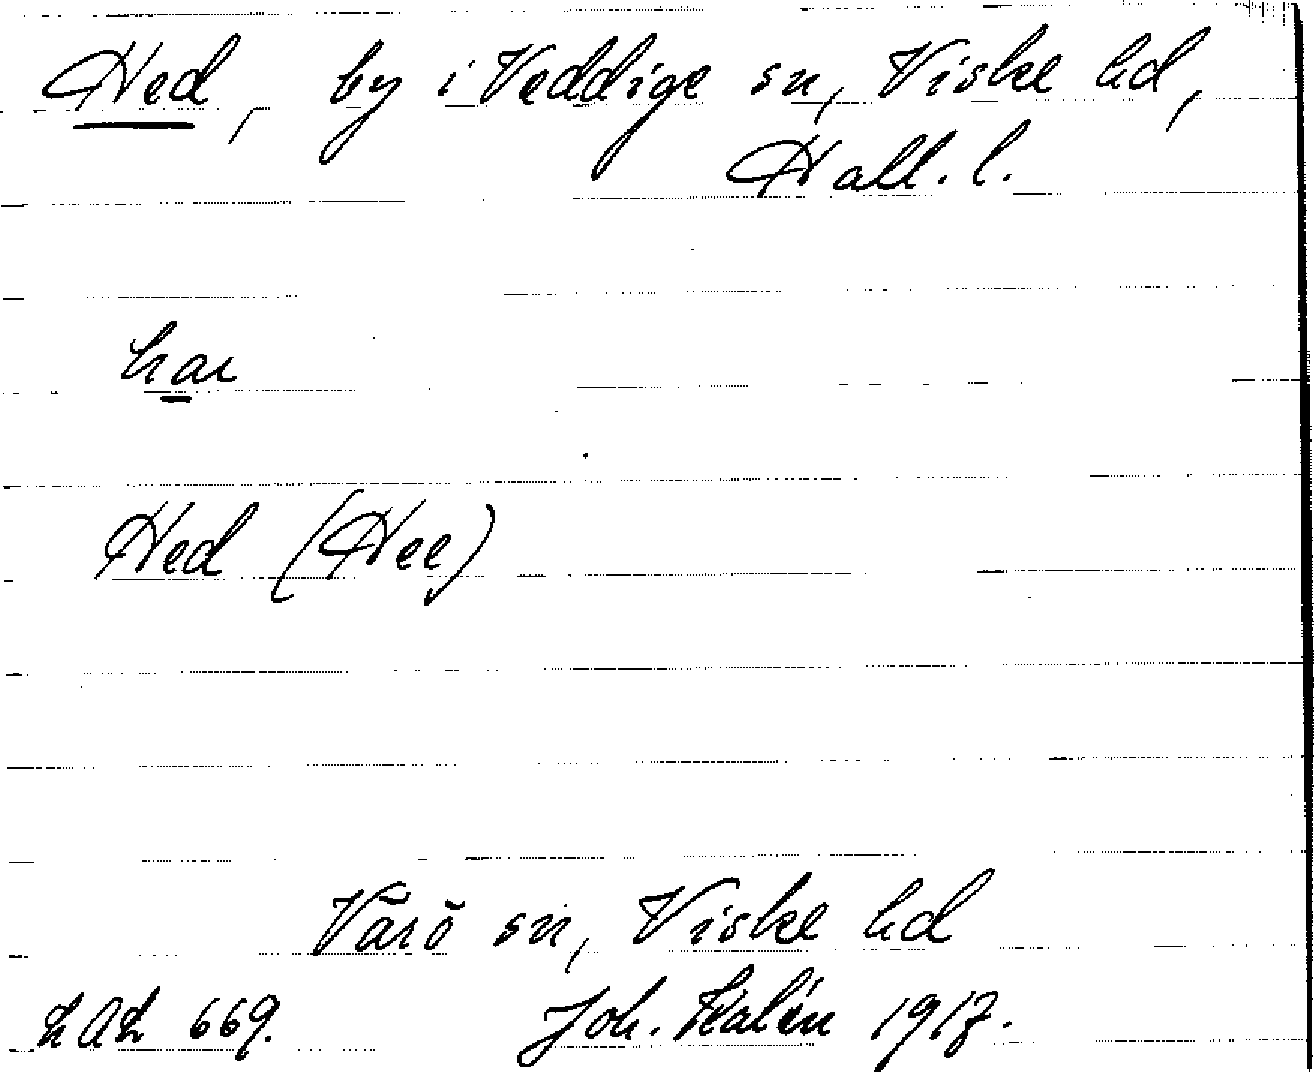 Hed, by i Veddige sn, Viske hd,
Hall. l.
Hed (Hee)
Värö sn, Viske hd
LAL 669. Joh. Kalén 1917.